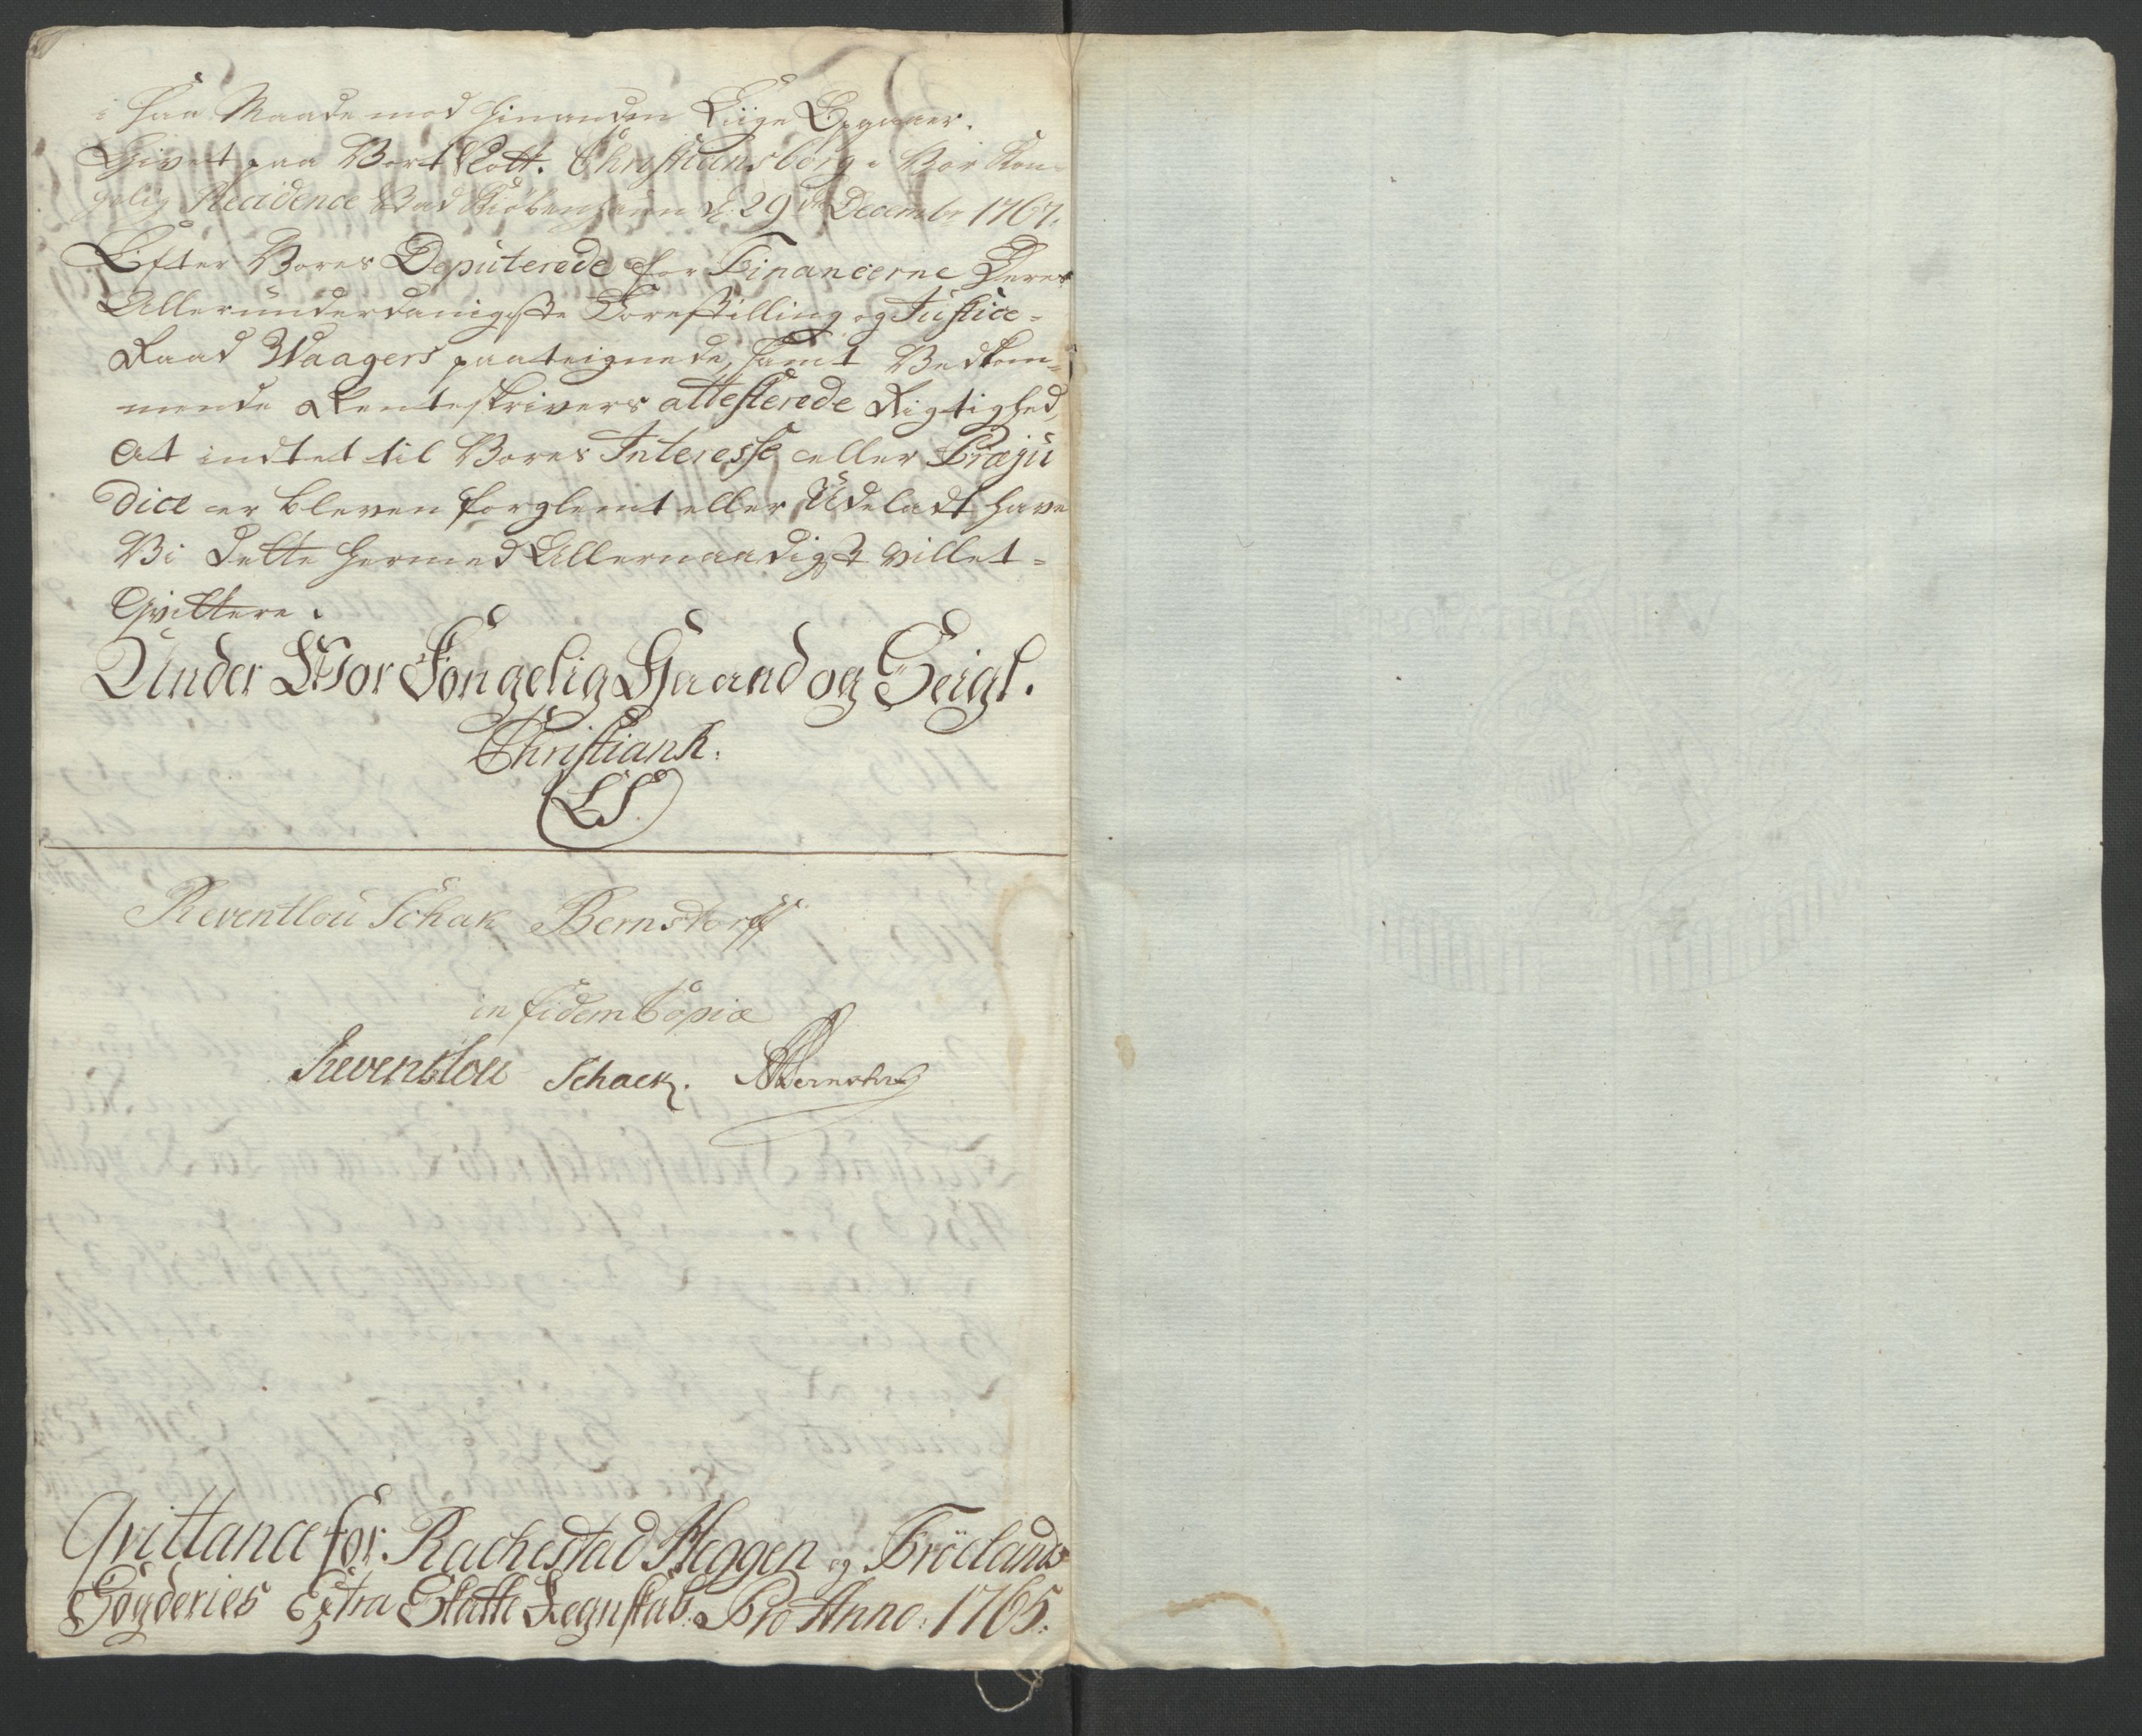 i saa Maade mod hinanden Liige Opgaaer.
Givet paa Vort Slott Christiansborg i Vor Kon-
gelig Residence Stad Kiøbenhavn d. 29de Decembr 1767.
Efter Vores Deputerede for Financerne Deres
Allerunderdanigste Forestilling og Justice-
Raad Waagers paateignede, samt Vedkom-
mende Renteskrivers attesterede Rigtighed,
at indtet til Vores Interesse eller Præju
dice er bleven forglemt eller Udeladt have
Vi dette hermed Allernaadigst villet-
Qvittere.
Under Vor Kongelig Haand og Seigl.
Christian R.
LS.
Reventlou Schak Bernstorff
in fidem Copiæ
Reventlou Schack. Bernstorff
Qvittance for Rachestad Heggen og Frölands
Fogderies Extra Skatte Regnskab. Pro Anno: 1765.